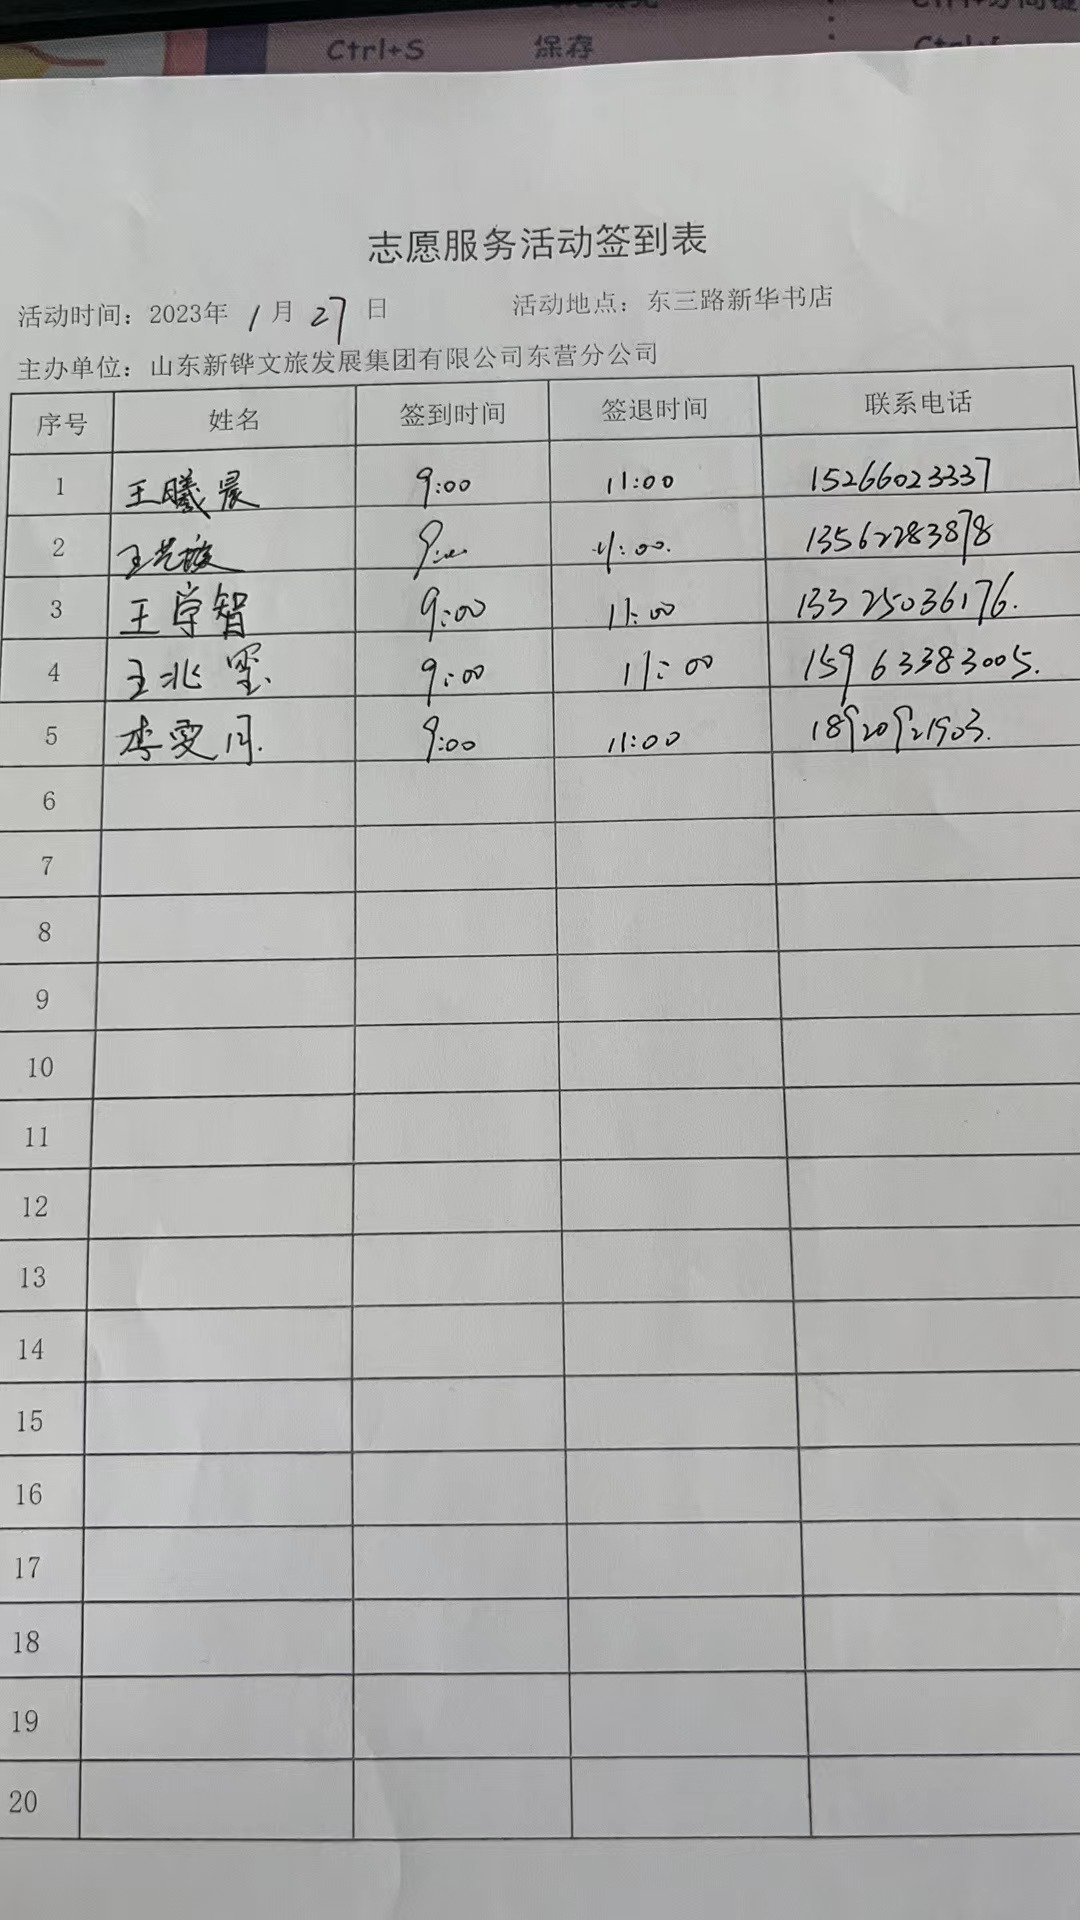 Ctrl+S 保存
志愿服务活动签到表
活动时间：2023年 1月 27日 活动地点：东三路新华书店
主办单位：山东新铧文旅发展集团有限公司东营分公司
序号 姓名 签到时间 签退时间 联系电话
1 王曦晨 9:00 11:00 15266023337
2 王艺璇 9:00 11:00. 13562283878
3 王学智 9:00 11:00 13325036176.
4 王兆玺 9:00 11:00 15963383005.
5 李雯月. 9:00 11:00 18920921903.
6
7
8
9
10
11
12
13
14
15
16
17
18
19
20